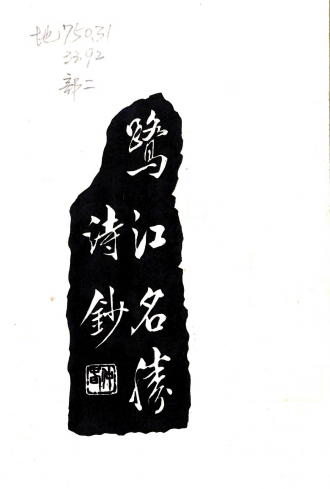 地750.31
33.92
部二
鹭江名勝
诗鈔